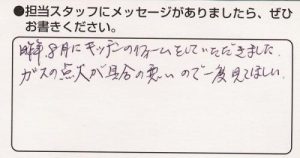 ●担当スタッフにメッセージがありましたら、ぜひ
お書きください。
昨年8月にキッチンのリフォームをしていただきました。
ガスの点火が具合の悪いので一度見てほしい。